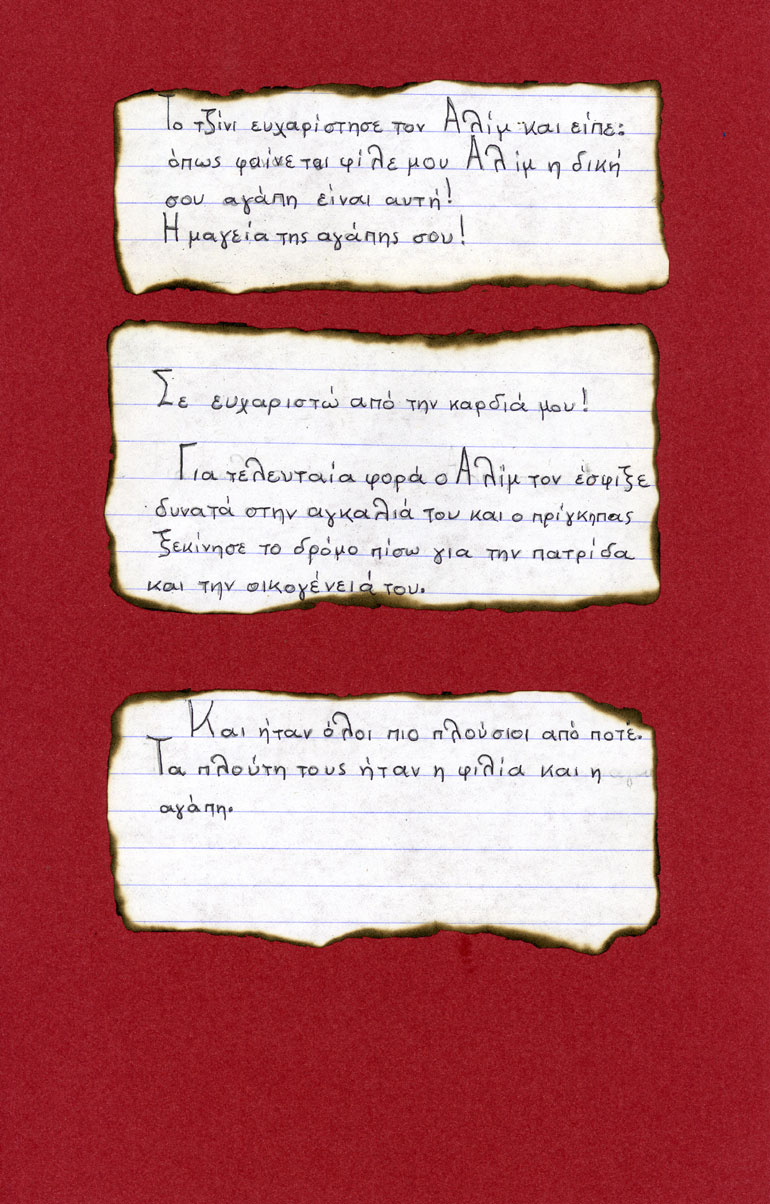 Το τζίνι ευχαρίστησε τον Αλίμ και είπε:
όπως φαίνεται φίλε μου Αλίμ η δική
σου αγάπη είναι αυτή!
Η μαγεία της αγάπης σου!
Σε ευχαριστώ από την καρδιά μου!
Για τελευταία φορά ο Αλίμ τον έσφιξε
δυνατά στην αγκαλιά του και ο πρίγκηπας
ξεκίνησε το δρόμο πίσω για την πατρίδα
και την οικογένειά του.
Και ήταν όλοι πιο πλούσιοι από ποτέ.
Τα πλούτη τους ήταν η φιλία και η
αγάπη.